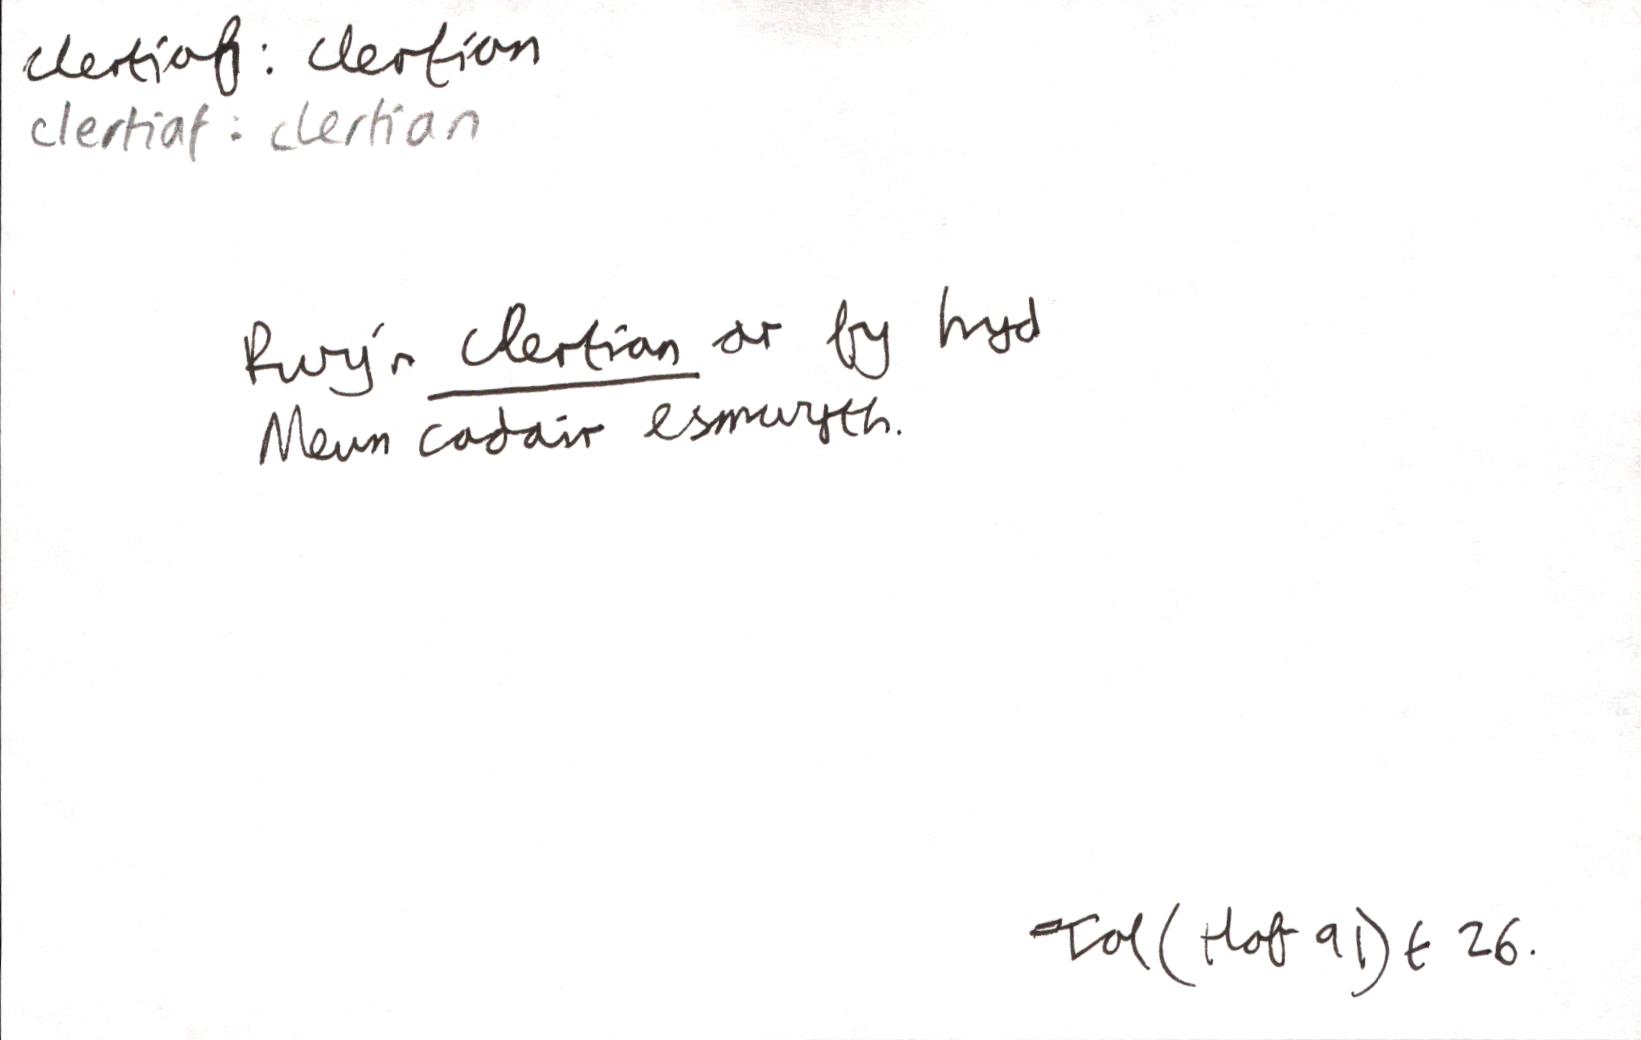 clertiaf: clertian
clertiaf: clertian
Rwy'n clertian ar fy hyd
Mewn cadair esmwyth.
Tol (Hof 91) t 26.